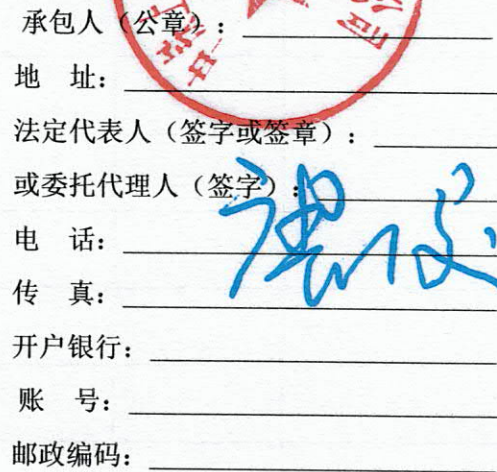 承包人（公章）：
地 址：
法定代表人（签字或签章）：
或委托代理人（签字）：
电 话：
传 真：
开户银行：
账 号：
邮政编码：